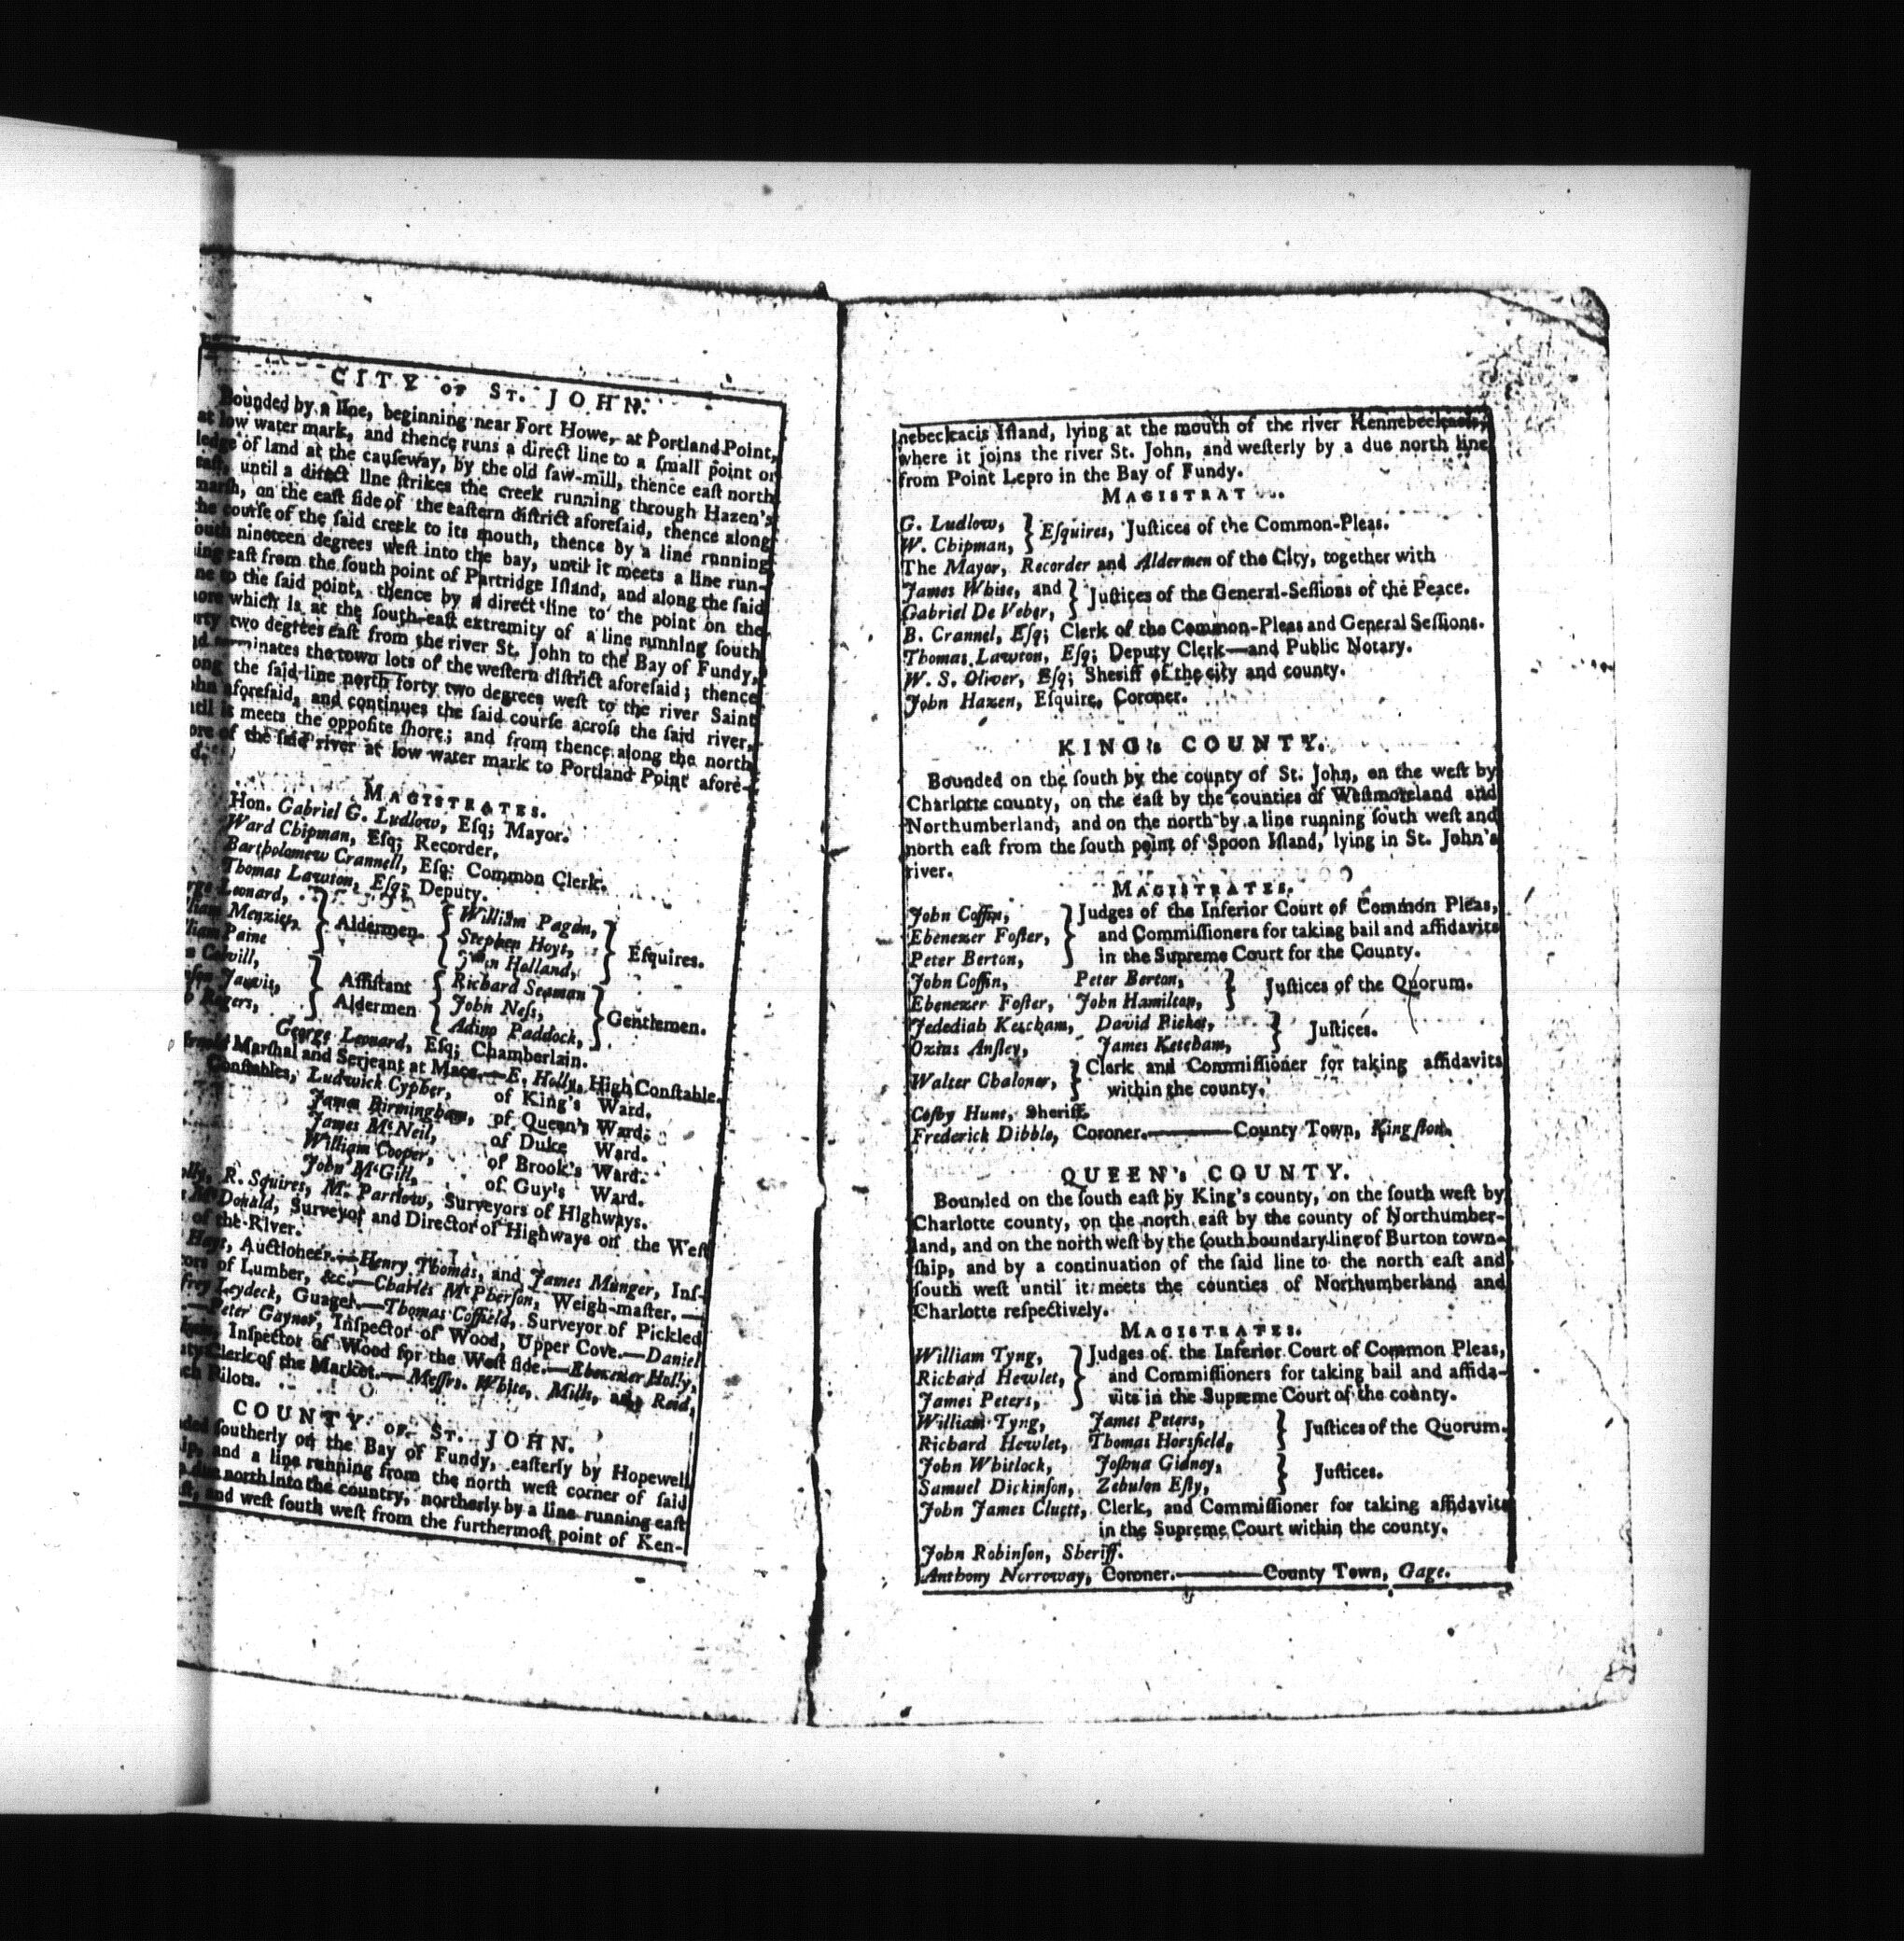 CITY OF ST. JOHN.
Bounded by a line, beginning near Fort Howe, at Portland Point,
at low water mark, and thence runs a direct line to a ſmall point or
ledge of land at the cauſeway, by the old ſaw-mill, thence eaſt north
eaſt, until a direct line ſtrikes the creek running through Hazen's
marſh, on the eaſt ſide of the eaſtern diſtrict aforeſaid, thence along
the courſe of the ſaid creek to its mouth, thence by a line running
ſouth nineteen degrees weſt into the bay, until it meets a line run-
ning eaſt from the ſouth point of Partridge Iſland, and along the ſaid
to the ſaid point, thence by a direct line to the point on the
which is at the ſouth-eaſt extremity of a line running ſouth
two degrees eaſt from the river St. John to the Bay of Fundy,
terminates the town lots of the weſtern diſtrict aforeſaid; thence
the ſaid line north forty two degrees weſt to the river Saint
aforeſaid, and continues the ſaid courſe acroſs the ſaid river,
it meets the oppoſite ſhore; and from thence along the north
of the ſaid river at low water mark to Portland Point afore-
MAGISTRATES.
Hon. Gabriel G. Ludlow, Eſq; Mayor.
Ward Chipman, Eſq; Recorder.
Bartholomew Crannell, Eſq: Common Clerk.
Thomas Lawton, Eſq; Deputy.
Leonard, William Pagan,
Menzies, Aldermen. Stephen Hoyt, Eſquires.
Paine Holland,
Colvill, Richard Seaman
Jarvis, Aſſiſtant John Neſs, Gentlemen.
Rogers, Aldermen Adino Paddock,
George Leonard, Eſq; Chamberlain.
Marſhal and Serjeant at Mace.—E. Holly, High Conſtable.
Conſtables, Ludwick Cypher, of King's Ward.
James Birmingham, of Queen's Ward.
James McNeil, of Duke Ward.
William Cooper, of Brook's Ward.
John McGill, of Guy's Ward.
R. Squires, M. Partlow, Surveyors of Highways.
McDonald, Surveyor and Director of Highways on the Weſt
of the River.
Hoyt, Auctioneer.—Henry Thomas, and James Munger, Inſ-
of Lumber, &c.—Charles McPherſon, Weigh-maſter.—
Leydeck, Guager.—Thomas Coffield, Surveyor of Pickled
—Peter Gaynor, Inſpector of Wood, Upper Cove.—Daniel
Inſpector of Wood for the Weſt ſide.—Ebenezer Holly,
Clerk of the Market.—Meſſrs. White, Mills, and Reid,
Pilots.
COUNTY OF ST. JOHN.
ſoutherly on the Bay of Fundy, eaſterly by Hopewell
and a line running from the north weſt corner of ſaid
due north into the country, northerly by a line running eaſt
and weſt ſouth weſt from the furthermoſt point of Ken-
nebeckacis Iſland, lying at the mouth of the river
where it joins the river St. John, and weſterly by a due north line
from Point Lepro in the Bay of Fundy.
MAGISTRAT
G. Ludlow, Eſquires, Juſtices of the Common-Pleas.
W. Chipman,
The Mayor, Recorder and Aldermen of the City, together with
James White, and Juſtices of the General-Seſſions of the Peace.
Gabriel De Veber,
B. Crannel, Eſq; Clerk of the Common-Pleas and General Seſſions.
Thomas Lawton, Eſq; Deputy Clerk—and Public Notary.
W. S. Oliver, Eſq; Sheriff of the city and county.
John Hazen, Eſquire, Coroner.
KING's COUNTY.
Bounded on the ſouth by the county of St. John, on the weſt by
Charlotte county, on the eaſt by the counties of Weſtmoreland and
Northumberland, and on the north by a line running ſouth weſt and
north eaſt from the ſouth point of Spoon Iſland, lying in St. John's
river.
MAGISTRATES.
John Coffin, Judges of the Inferior Court of Common Pleas,
Ebenezer Foſter, and Commiſſioners for taking bail and affidavits
Peter Berton, in the Supreme Court for the County.
John Coffin, Peter Berton, Juſtices of the Quorum.
Ebenezer Foſter, John Hamilton,
Jedediah Ketcham, David Pickett, Juſtices.
Ozias Anſley, James Ketcham,
Walter Chaloner, Clerk and Commiſſioner for taking affidavits
within the county.
Coſby Hunt, Sheriff.
Frederick Dibble, Coroner.———County Town, Kingſton.
QUEEN's COUNTY.
Bounded on the ſouth eaſt by King's county, on the ſouth weſt by
Charlotte county, on the north eaſt by the county of Northumber-
land, and on the north weſt by the ſouth boundary line of Burton town-
ſhip, and by a continuation of the ſaid line to the north eaſt and
ſouth weſt until it meets the counties of Northumberland and
Charlotte reſpectively.
MAGISTRATES.
William Tyng, Judges of the Inferior Court of Common Pleas,
Richard Hewlet, and Commiſſioners for taking bail and affida-
James Peters, vits in the Supreme Court of the county.
William Tyng, James Peters, Juſtices of the Quorum.
Richard Hewlet, Thomas Horsfield,
John Whitlock, Joſhua Gidney, Juſtices.
Samuel Dickinſon, Zebulon Eſty,
John James Cluett, Clerk, and Commiſſioner for taking affidavits
in the Supreme Court within the county.
John Robinſon, Sheriff.
Anthony Norroway, Coroner.———County Town, Gage.